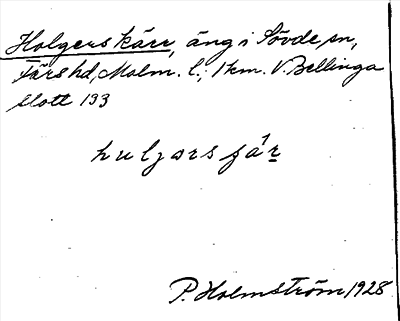 Holgers kärr, äng i Sövde sn,
Färs hd, Malm. l.; 1 km. V. Bellinga
slott 193
huljərs
P. Holmström 1928